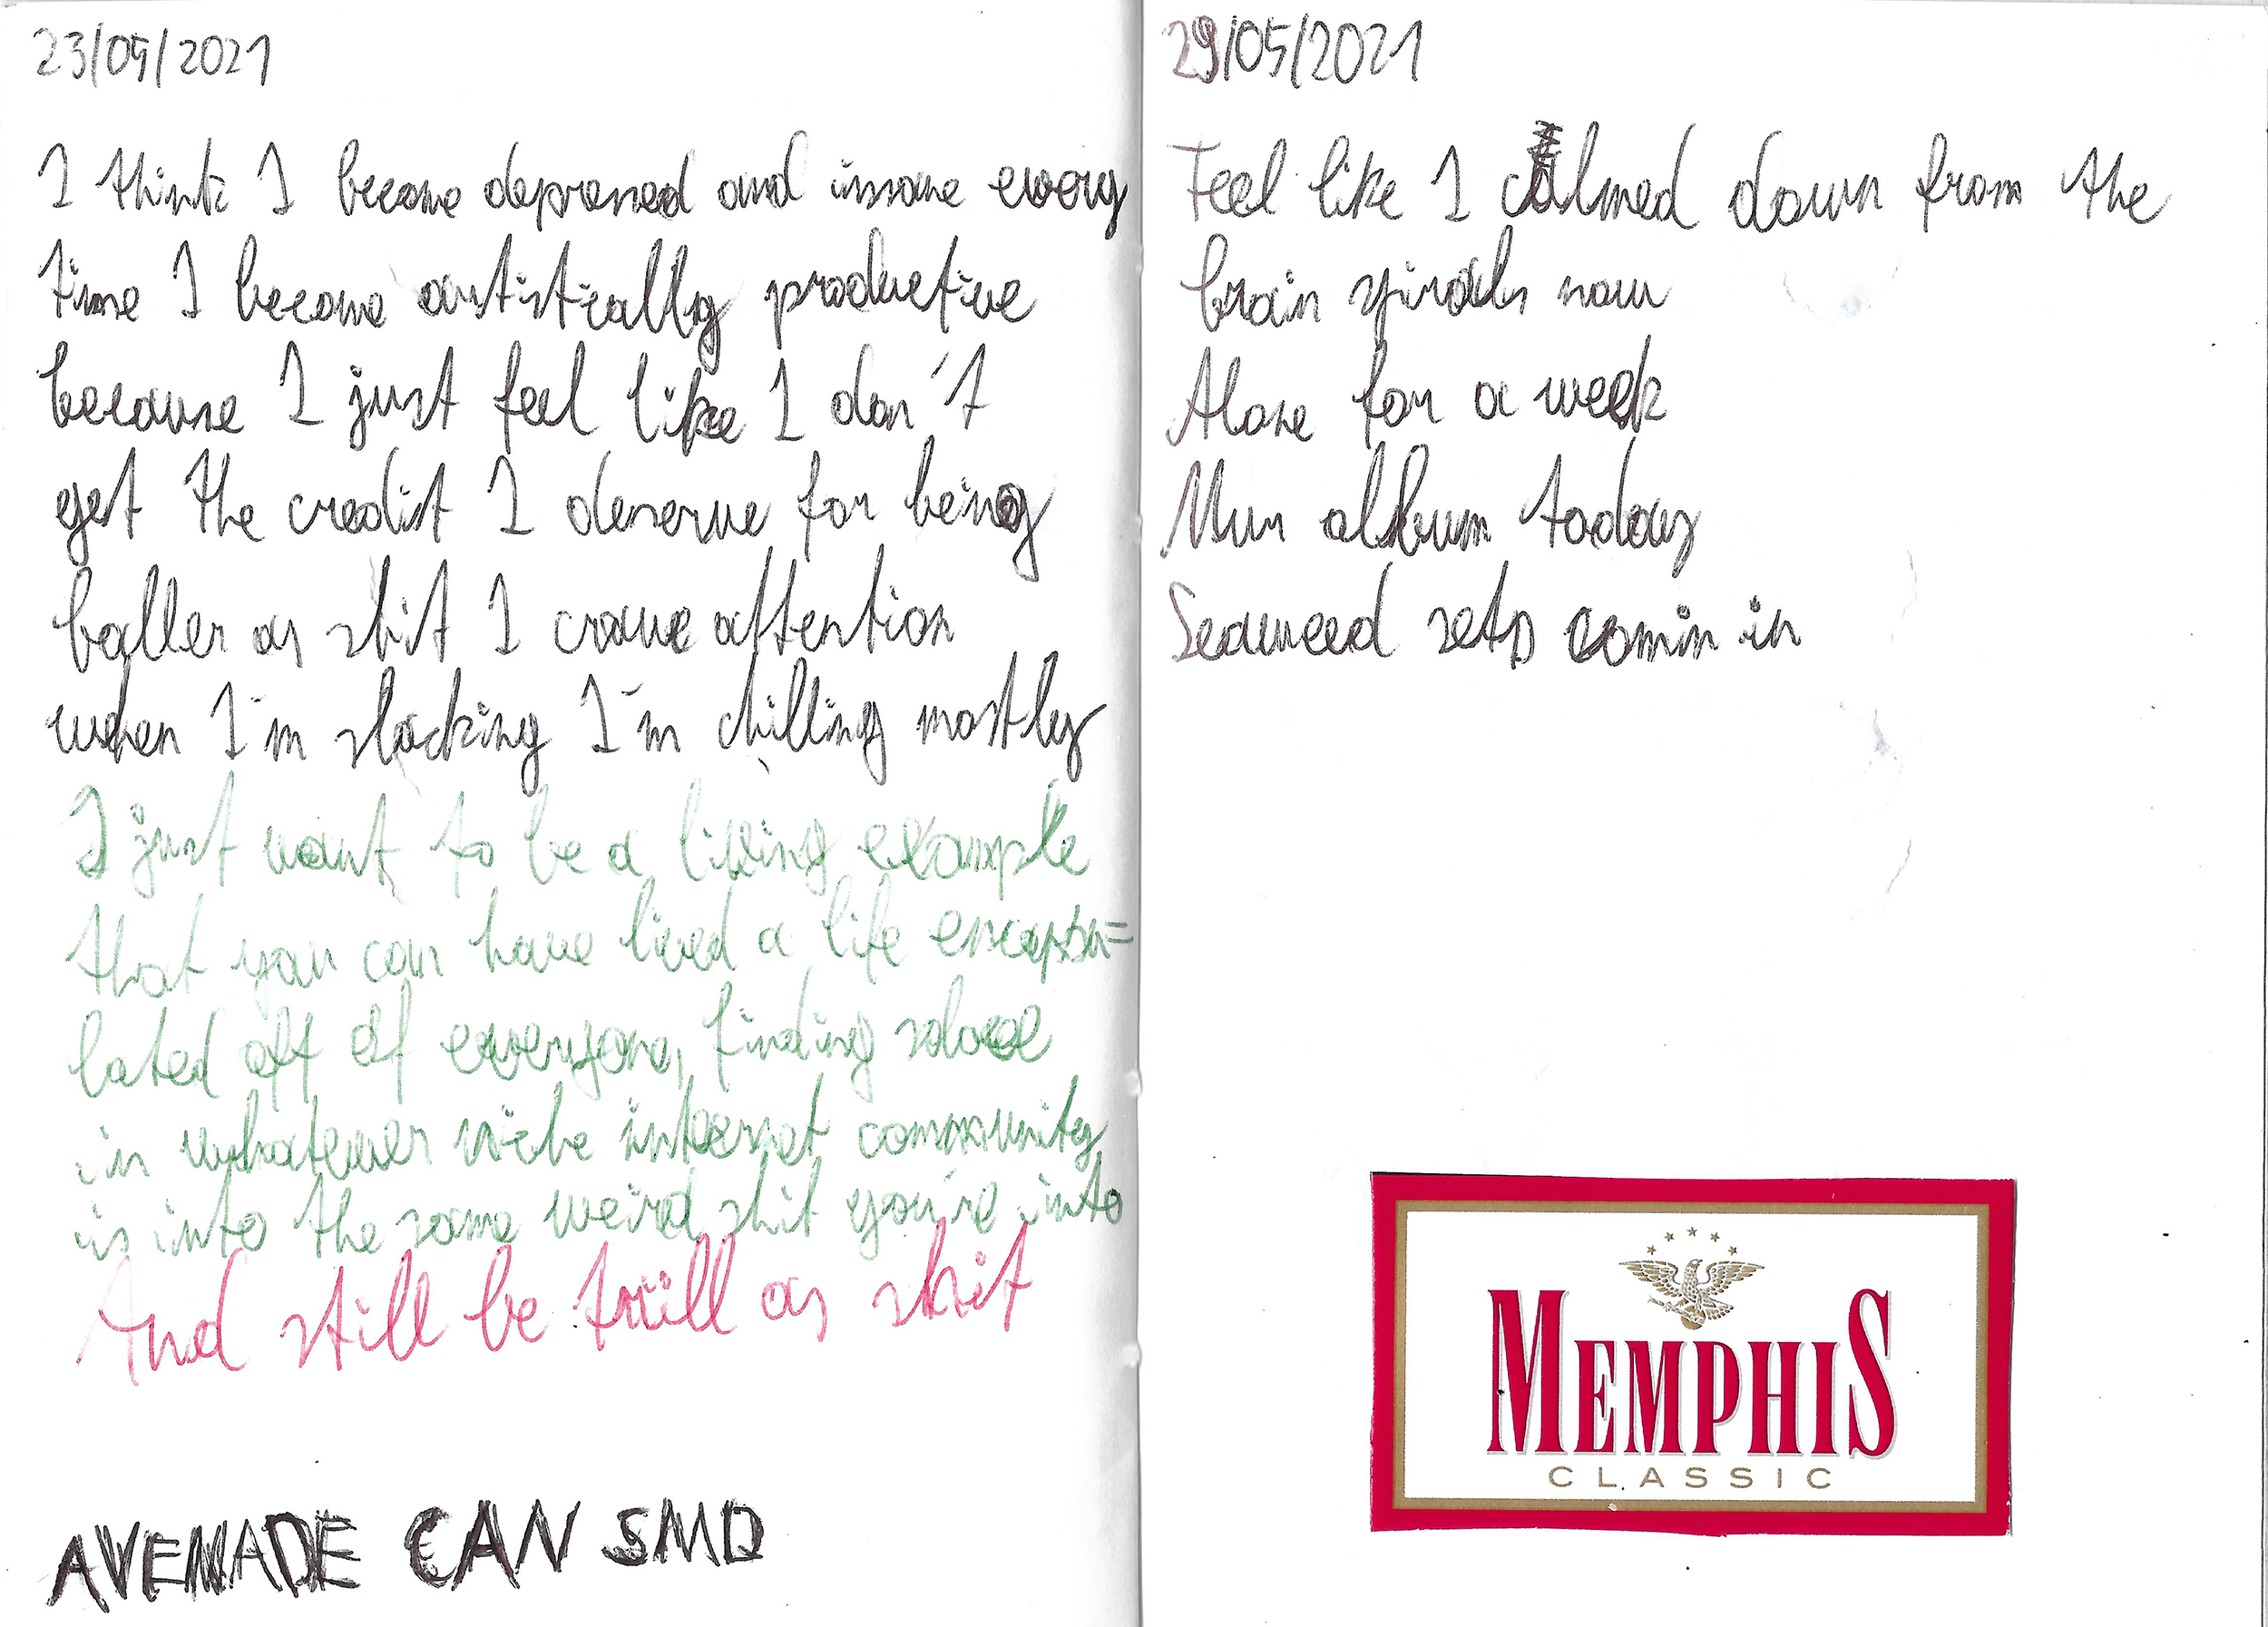 23/05/2021
I think I become depressed and insane every
time I become artistically productive
because I just feel like I don't
get the credit I deserve for being
baller as shit I crave attention
when I'm slacking I'm chilling mostly
I just want to be a living example
that you can have lived a life encapsu=
lated off of everyone, finding solace
in whatever niche internet community
is into the same weird shit you're into
And still be trill as shit
AVENADE CAN SMD
29/05/2021
Feel like I calmed down from the
brain spirals now
Alone for a week
Mun album today
Seaweed sets comin in
MEMPHIS
CLASSIC